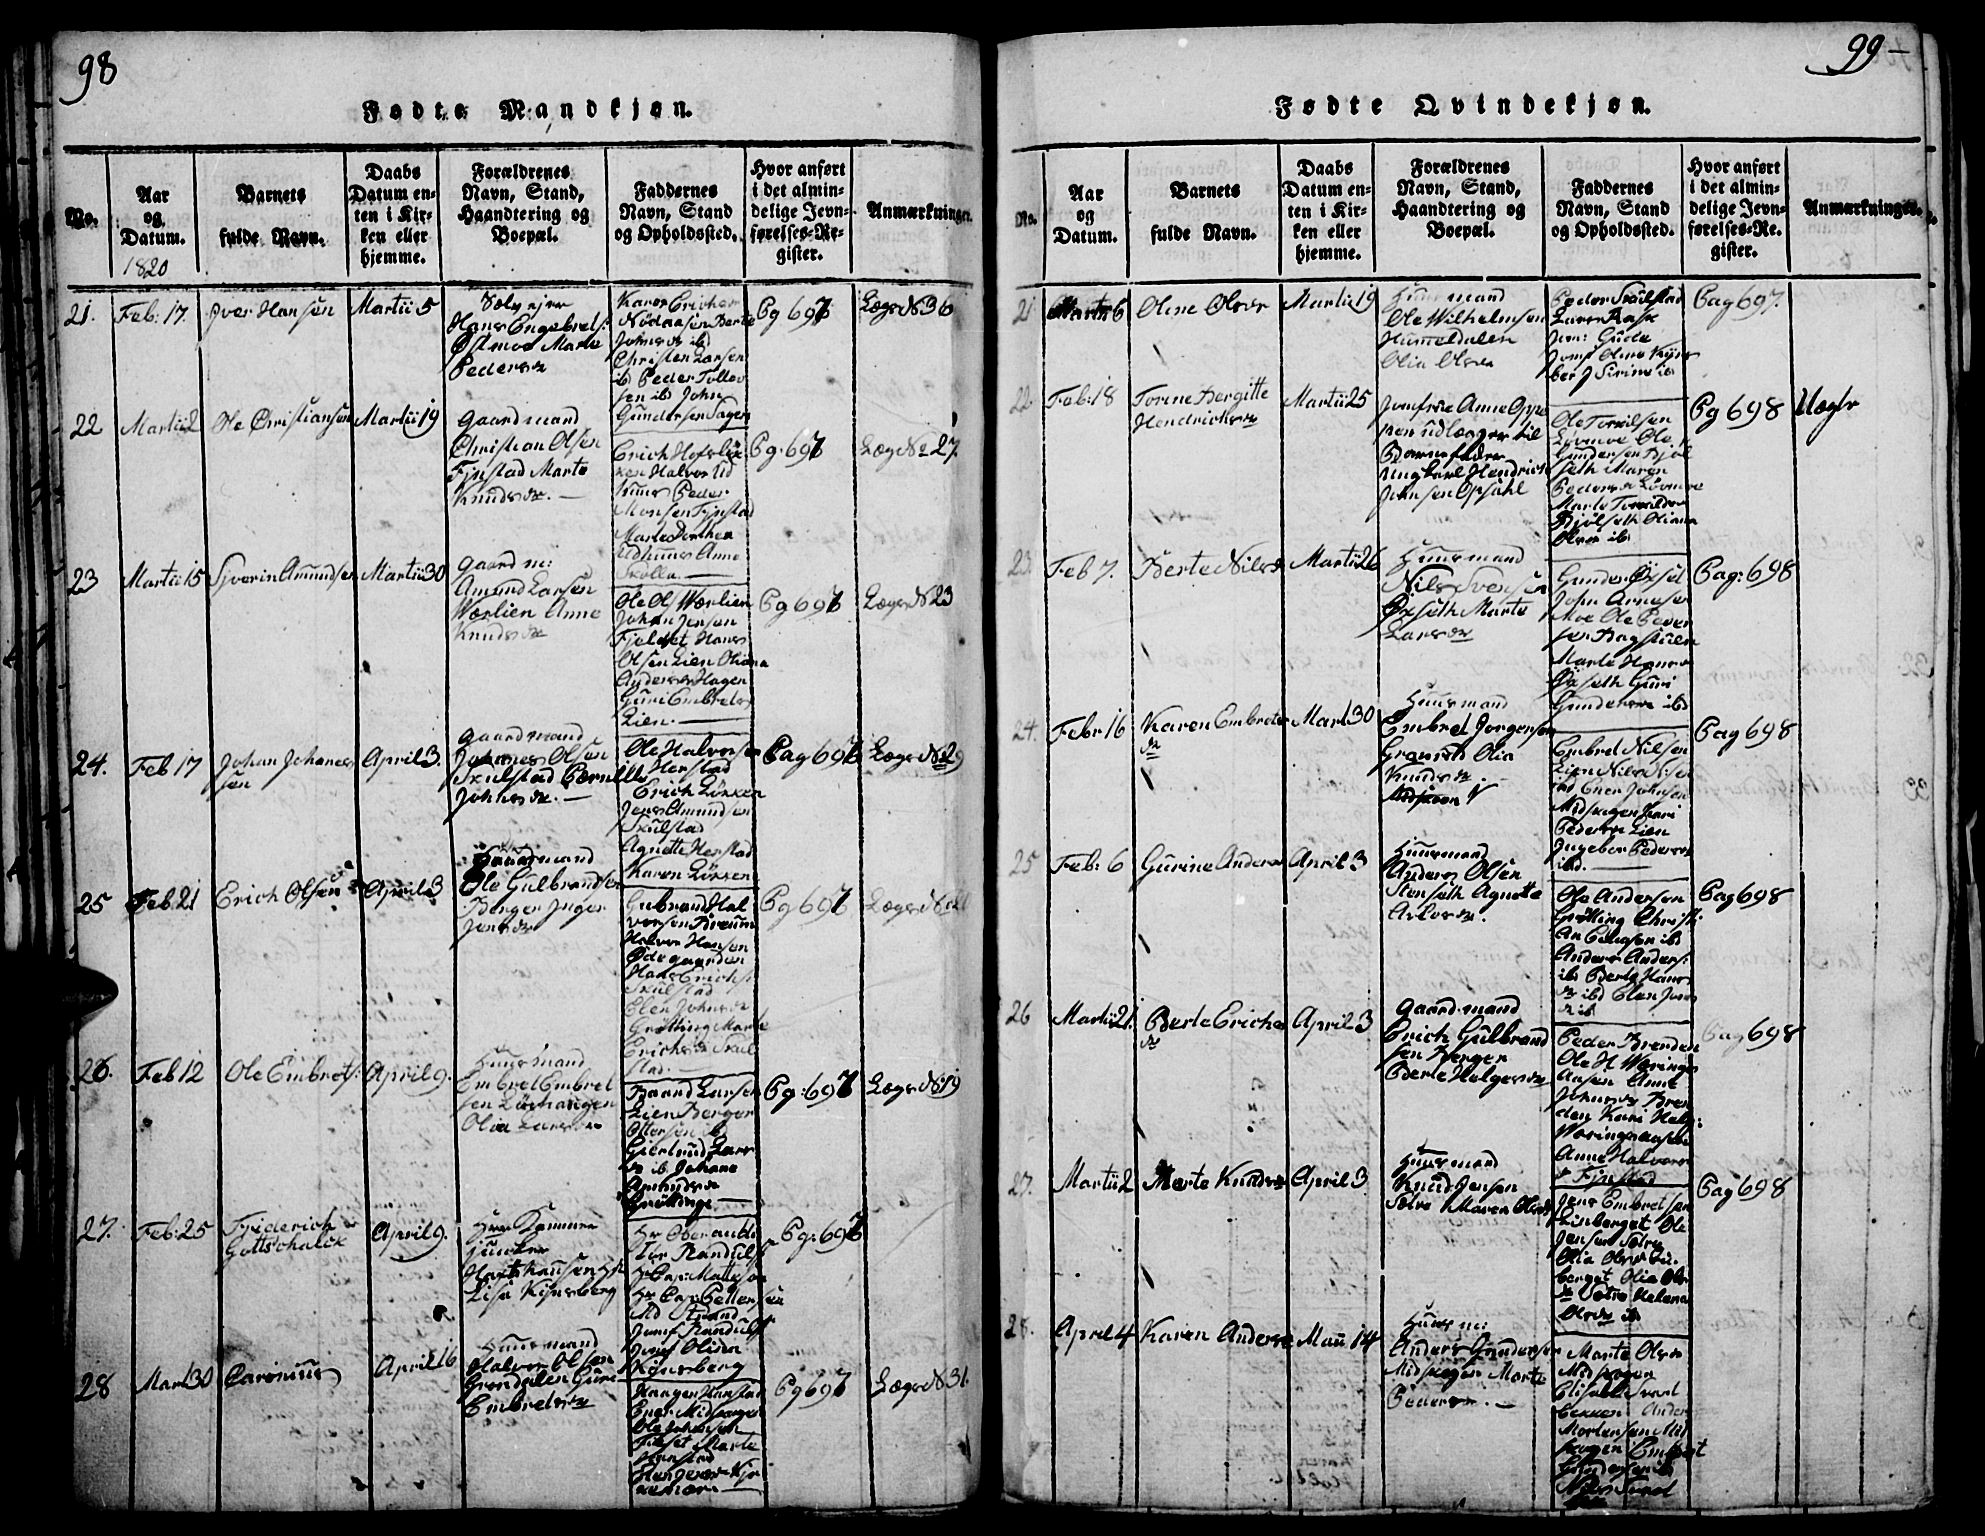 98
Fødte Mandkjøn.
No.
Aar
og
Datum.
1820
Barnets
fulde Navn.
Daabs
Datum en-
ten i Kir-
ken eller
hjemme.
Forældrenes
Navn, Stand,
Haandtering og
Boepæl.
Faddernes
Navn, Stand
og Opholdssted.
Hvor anført
i det almin-
delige Jevn-
førelses-Re-
gister.
Anmærkninger.
21.
Feb: 17.
Iver Hansen
Martii 5
Selvejer
Hans Engebrets:
Østmoe Marte
Pedersdr
Johnsdr ibd
Christen Larsen
ib Peder Tollev
sen ib John
Gundersen Sagen
Pg 697
Læges No 36
22
Martii 2
Ole Christiansen
Martii 19
Gaardmand
Christian Olsen
Fjnstad Marte
Knudsdr. —
Peder
Monsen Fjnstad
Marte Dorthea
Udhuus Anne
Skolla. —
Pg. 697
Læg No 27.
23
Martii 15
Syverin Amundsen
Martii 30
Gaardm:
Amund Larsen
Wærlien Anne
Knudsdr
Ole Ols Wærlien
Johan Jensen
Fjeldset Hans
Olsen Lien Oliana
Anders Hagen
Guri Embretsdr
Lien. —
Pg 697
Læges No 23
24.
Feb 17
Johan Johanes
sen
April 3.
Gaardmand
Johannes Olsen
Skulstad Pernille
Johnsdr. —
Ole Halvorsen
Herstad
Erich Løkken
Jens Amundsen
Skulstad
Agnette Herstad
Karen Løkken
Pag 697
Læges No 29
25
Feb 21
Erich Olsen
April 3
Gaardmand
Ole Gulbrandsen
Berger Inger
Jensdr
Gubrand Hal
vorsen Bræum
Halvor Hansen
Ødegaarden
Hans Erichs:
Skulstad
Elen Johnsdr
Grøtting Marte
Erichsdr Skul
stad. —
Pg 697
26.
Feb 12
Ole Embrets:
April 9.
Huusmand
Embret Embret
sen Løvhaugen
Olia Larsdr
Baard Larsen
Lien Berger
Ottersen ib
Giertrud Lars
dr ib Johane
Amundsdr
Grøttinge —
Pg: 697
Læges No 19
27.
Feb: 25
Friderich
Gottschalck
April 9.
Herr Kammer
Huncker
Haxthausen
Lisa Kijnsberg
Hr Capt Pettersen
Strand
Jomf Randulf
Jomf Olina
Kijnsberg
Pg: 697
28
Mart 30
Paronius
April 16
Huusmand
Halvor Olsen
Grøndalen Guri
Embretsdr
Haagen Hanstad
Ener Midskogen
Ole Johansen
Marte
Hanstad
Pg 697
Læges No 31.
99 —
Fødte Qvindekjøn.
No.
Aar
og
Datum.
Barnets
fulde Navn.
Daabs
Datum en-
ten i Kir-
ken eller
hjemme.
Forældrenes
Navn, Stand,
Haandtering og
Boepæl.
Faddernes
Navn, Stand
og Opholdssted.
Hvor anført
i det almin-
delige Jevn-
førelses-Re-
gister.
Anmærkninger.
21.
Martii 6
Oline Olsdr
Martii 19
Huusmand
Ole Wilhelmsen
Hummeldalen
Olia Olsdr
Peder Skulstad
Lars Rask
Jom: Gude
Jomf Oline Kijns
berg
Pag 697.
22.
Feb: 18
Torine Bergitte
Hendrichsdr
Martii 25
Jomfrue Anne Oppe
pen udlægger til
Barnefader
Ungkarl Hendrich
Johnsen Opsahl
Ole Torkilsen
Løvmoe Ole
Gundersen Biøl
seth Maren
Pedersdr Løvmoe
Marte Torkildsdr
Biølseth Oliana
Olsdr ibd
Pg 698
Uægte
23.
Feb 7.
Berte Nilsdr
Martii 26
Huusmand
Nils Svensen
Øxseth Marte
Larsdr
Gunder Øxset
John Arnesen
Moe Ole Peder
sen Bagstuen
Marte Hansdr
Øxseth Guri
Gundersdr ibd
Pag: 698
24.
Febr 16
Karen Embrets
dr
Mart 30
Huusmand
Embret Jørgensen
Olia
Knudsdr. —
Midskoen
Embret Nilsen
Lien Nils Nilsen
ibd Ener Johnsen
Midskogen Kari
Pedersdr Lien
Ingebor Pedersdr
ibd. —
Pag 698
25
Feb: 6
Gurine Andersdr
April 3
Huusmand
Anders Olsen
Stenseth Agnette
Ole Andersen
Grøtting Christi
ibd
Anders Anders:
ib Berte Hans
dr ibd Elen Jens
dr ib
Pag 698
26
Martii 21.
Berte Erichs
dr
April 3
Gaardmand
Erich Gulbrand
sen Berger
Berte Helgesdr
Peder Brenden
Ole H Wæringe
Aasen Anne
Johnsdr Bren
den Kari Helg:
Wæringsaasen
Anne Halvors
dr Fjnstad
Pag 698
27.
Martii 2
Marte Knudsdr
April 3
Huusmand
Knud Jensen
Sætre Maren Olsdr
Jens Embretsen
Linberget Ole
Jensen Sætre
Olia Olsdr Lin
berget Olia Ols
dr Sætre Helena
Olsdr ib
Pag 698
28.
April 4
Karen Andersdr
Maii 14
Huusm:
Anders Gundersen
Midskogen Marte
Pedersdr. —
Marte Olsdr
Midskogen
Elisabet
Anders
Mortensen Mid
skogen Embret
Gundersen ib
Nils